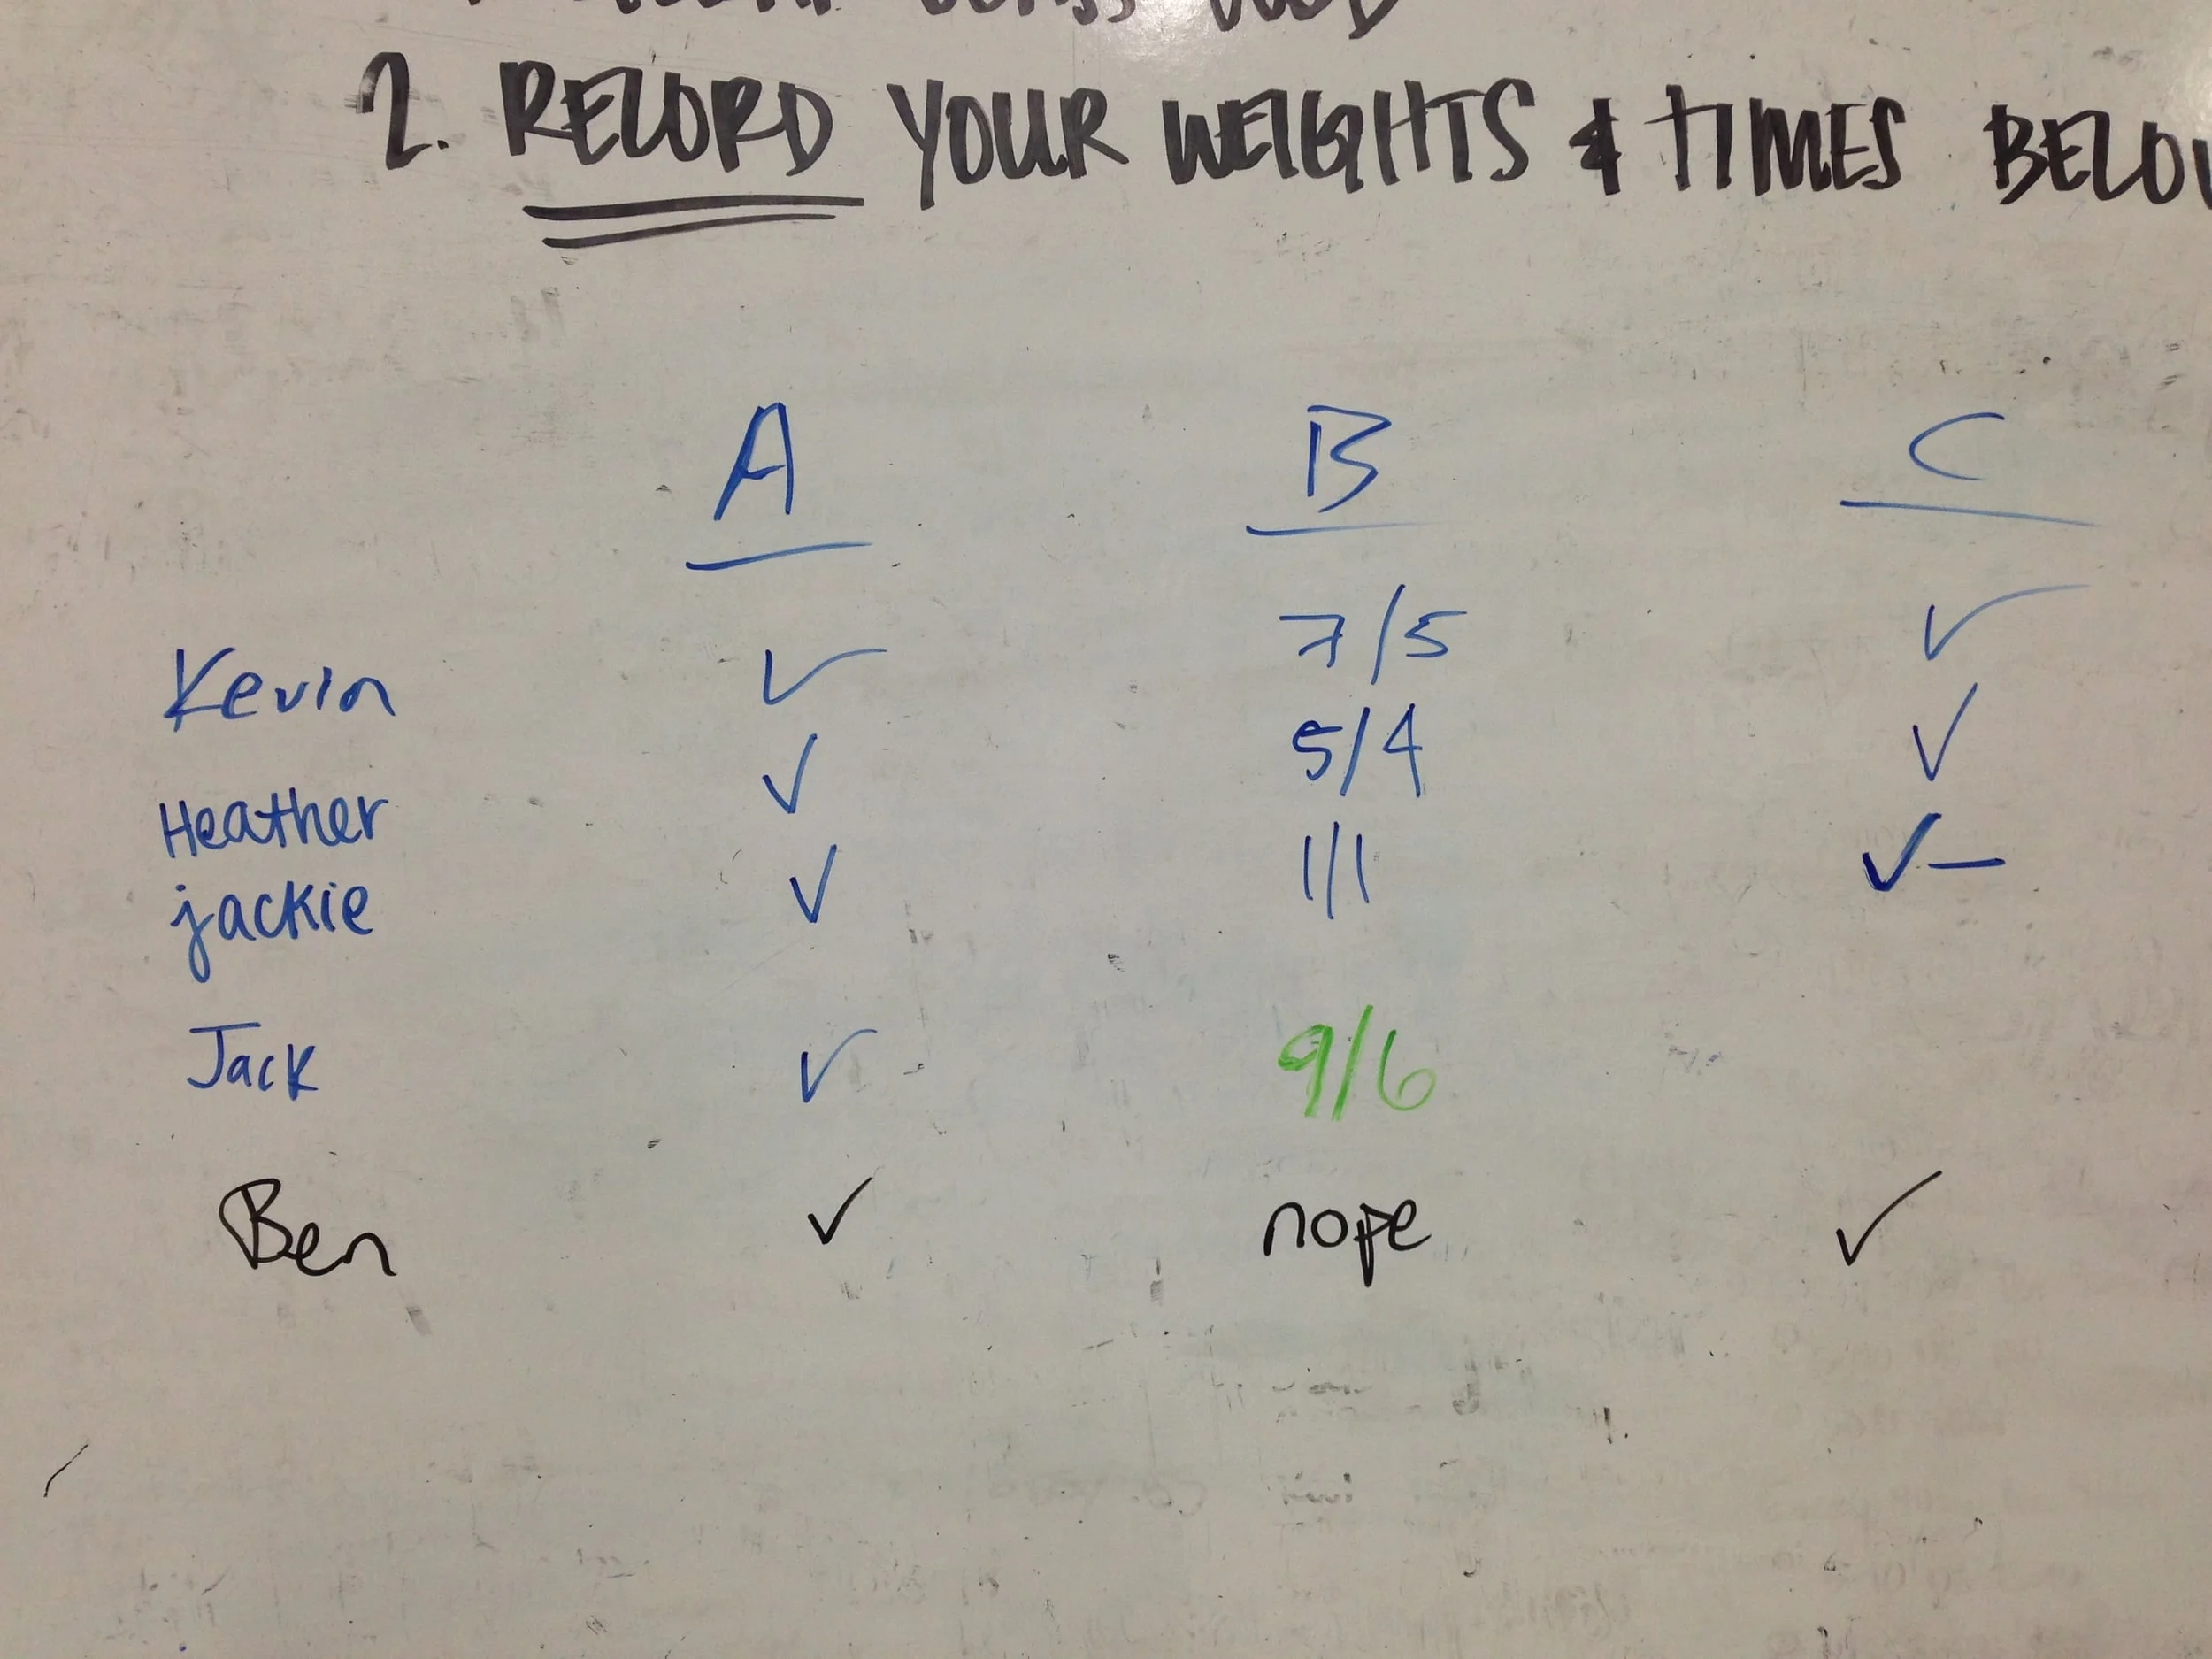 2. RECORD YOUR WEIGHTS & TIMES BELOW
A B C
Kevin ✓ 7/5 ✓
Heather ✓ 5/4 ✓
jackie ✓ 1/1 ✓—
Jack ✓ 9/6
Ben ✓ nope ✓